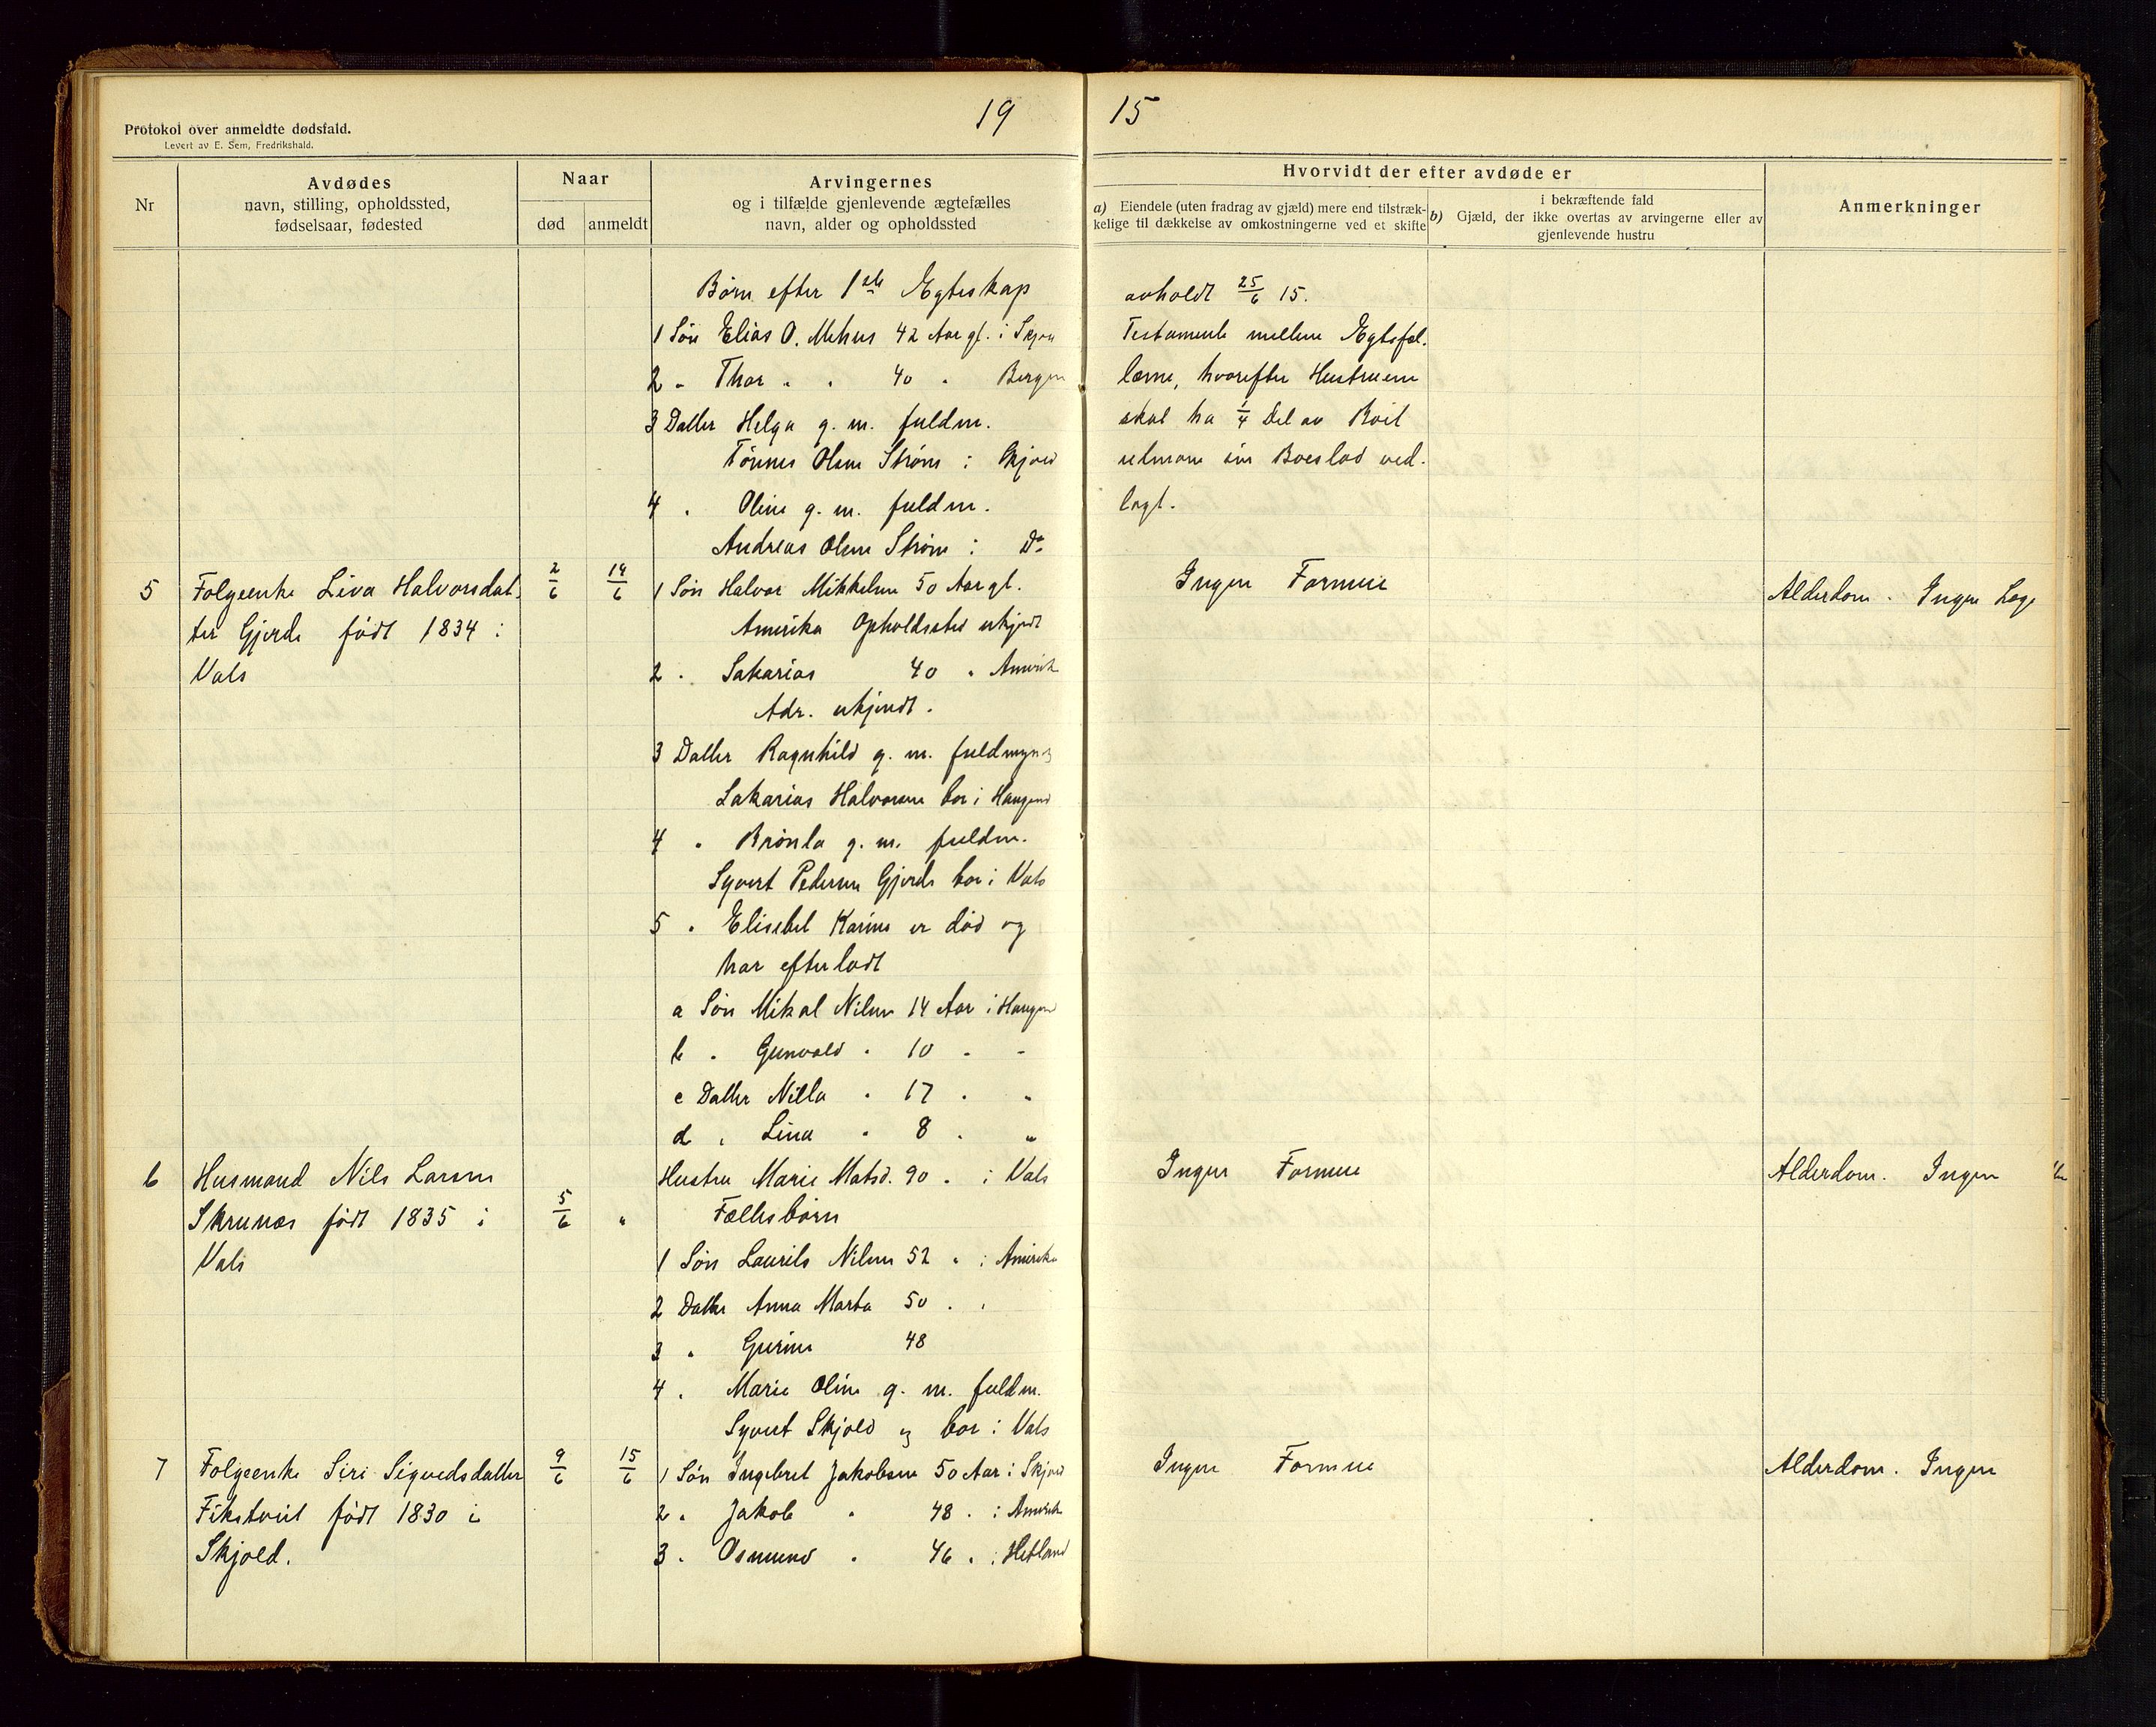 19 15
Protokol over anmeldte dødsfald.
Levert av E. Sem, Fredrikshald.
Nr
Avdødes
navn, stilling, opholdssted,
fødselsaar, fødested
Naar
død
anmeldt
Arvingernes
og i tilfælde gjenlevende ægtefælles
navn, alder og opholdssted
Hvorvidt der efter avdøde er
a) Eiendele (uten fradrag av gjæld) mere end tilstræk-
kelige til dækkelse av omkostningerne ved et skifte
i bekræftende fald
b) Gjæld, der ikke overtas av arvingerne eller av
gjenlevende hustru
Anmerkninger
Børn efter 1ste Egteskap
1 Søn Elias O. Mehus 42 Aar gl. i Skjou
2 " Thor " " 40 " Bergen
3 Datter Helga g. m. fuldm.
Tønnes Olsen Strøm i Skjold
4 " Oline g. m. fuldm.
Andreas Olsen Strøm i Do
avholdt 25/6 15.
Testamente mellem Egtefæl-
lerne, hvorefter Hustruen
skal ha 1/4 Del av
sin Boeslod ved-
lagt.
5 Folgeenke Liva Halvorsdat-
ter Gjerde født 1834 i
Vats
2/6 14/6
1 Søn Halvor Mikkelsen 50 Aar gl.
Amerika Opholdssted ukjendt
2 " Sakarias 40 " Amerik
Adr. ukjendt.
3 Datter Ragnhild g. m. fuldmynd
Sakarias Halvorsen bor i Haugesund
4 " Brønla g. m. fuldm.
Syvert Pedersen Gjerde bor i Vats
5 " Elisebet Karine er død og
har efterladt
a Søn Mikal Nilsen 14 Aar i Haugesund
b " Gunvald " 10 " "
c Datter Nilla " 17 " "
d " Lina " 8 " "
Ingen Formue
Alderdom. Ingen Læge
6 Husmand Nils Larsen
Skrunes født 1835 i
Vats
5/6 "
Hustru Marie Matsd. 90 " i Vats
Fællesbørn
1 Søn Laurits Nilsen 52 " i Amerika
2 Datter Anna Marta 50 " "
3 " Gurine 48
4 " Marie Oline g. m. fuldm.
Syvert Skjold og bor i Vats
Ingen Formue
Alderdom. Ingen
7 Folgeenke Siri Sigvedsdatter
Fikstveit født 1830 i
Skjold.
9/6 15/6
1 Søn Ingebret Jakobsen 50 Aar i Skjold
2 " Jakob " 48 " i Amerik
3 " Osmund " 46 " i Hetland
Ingen Formue
Alderdom. Ingen